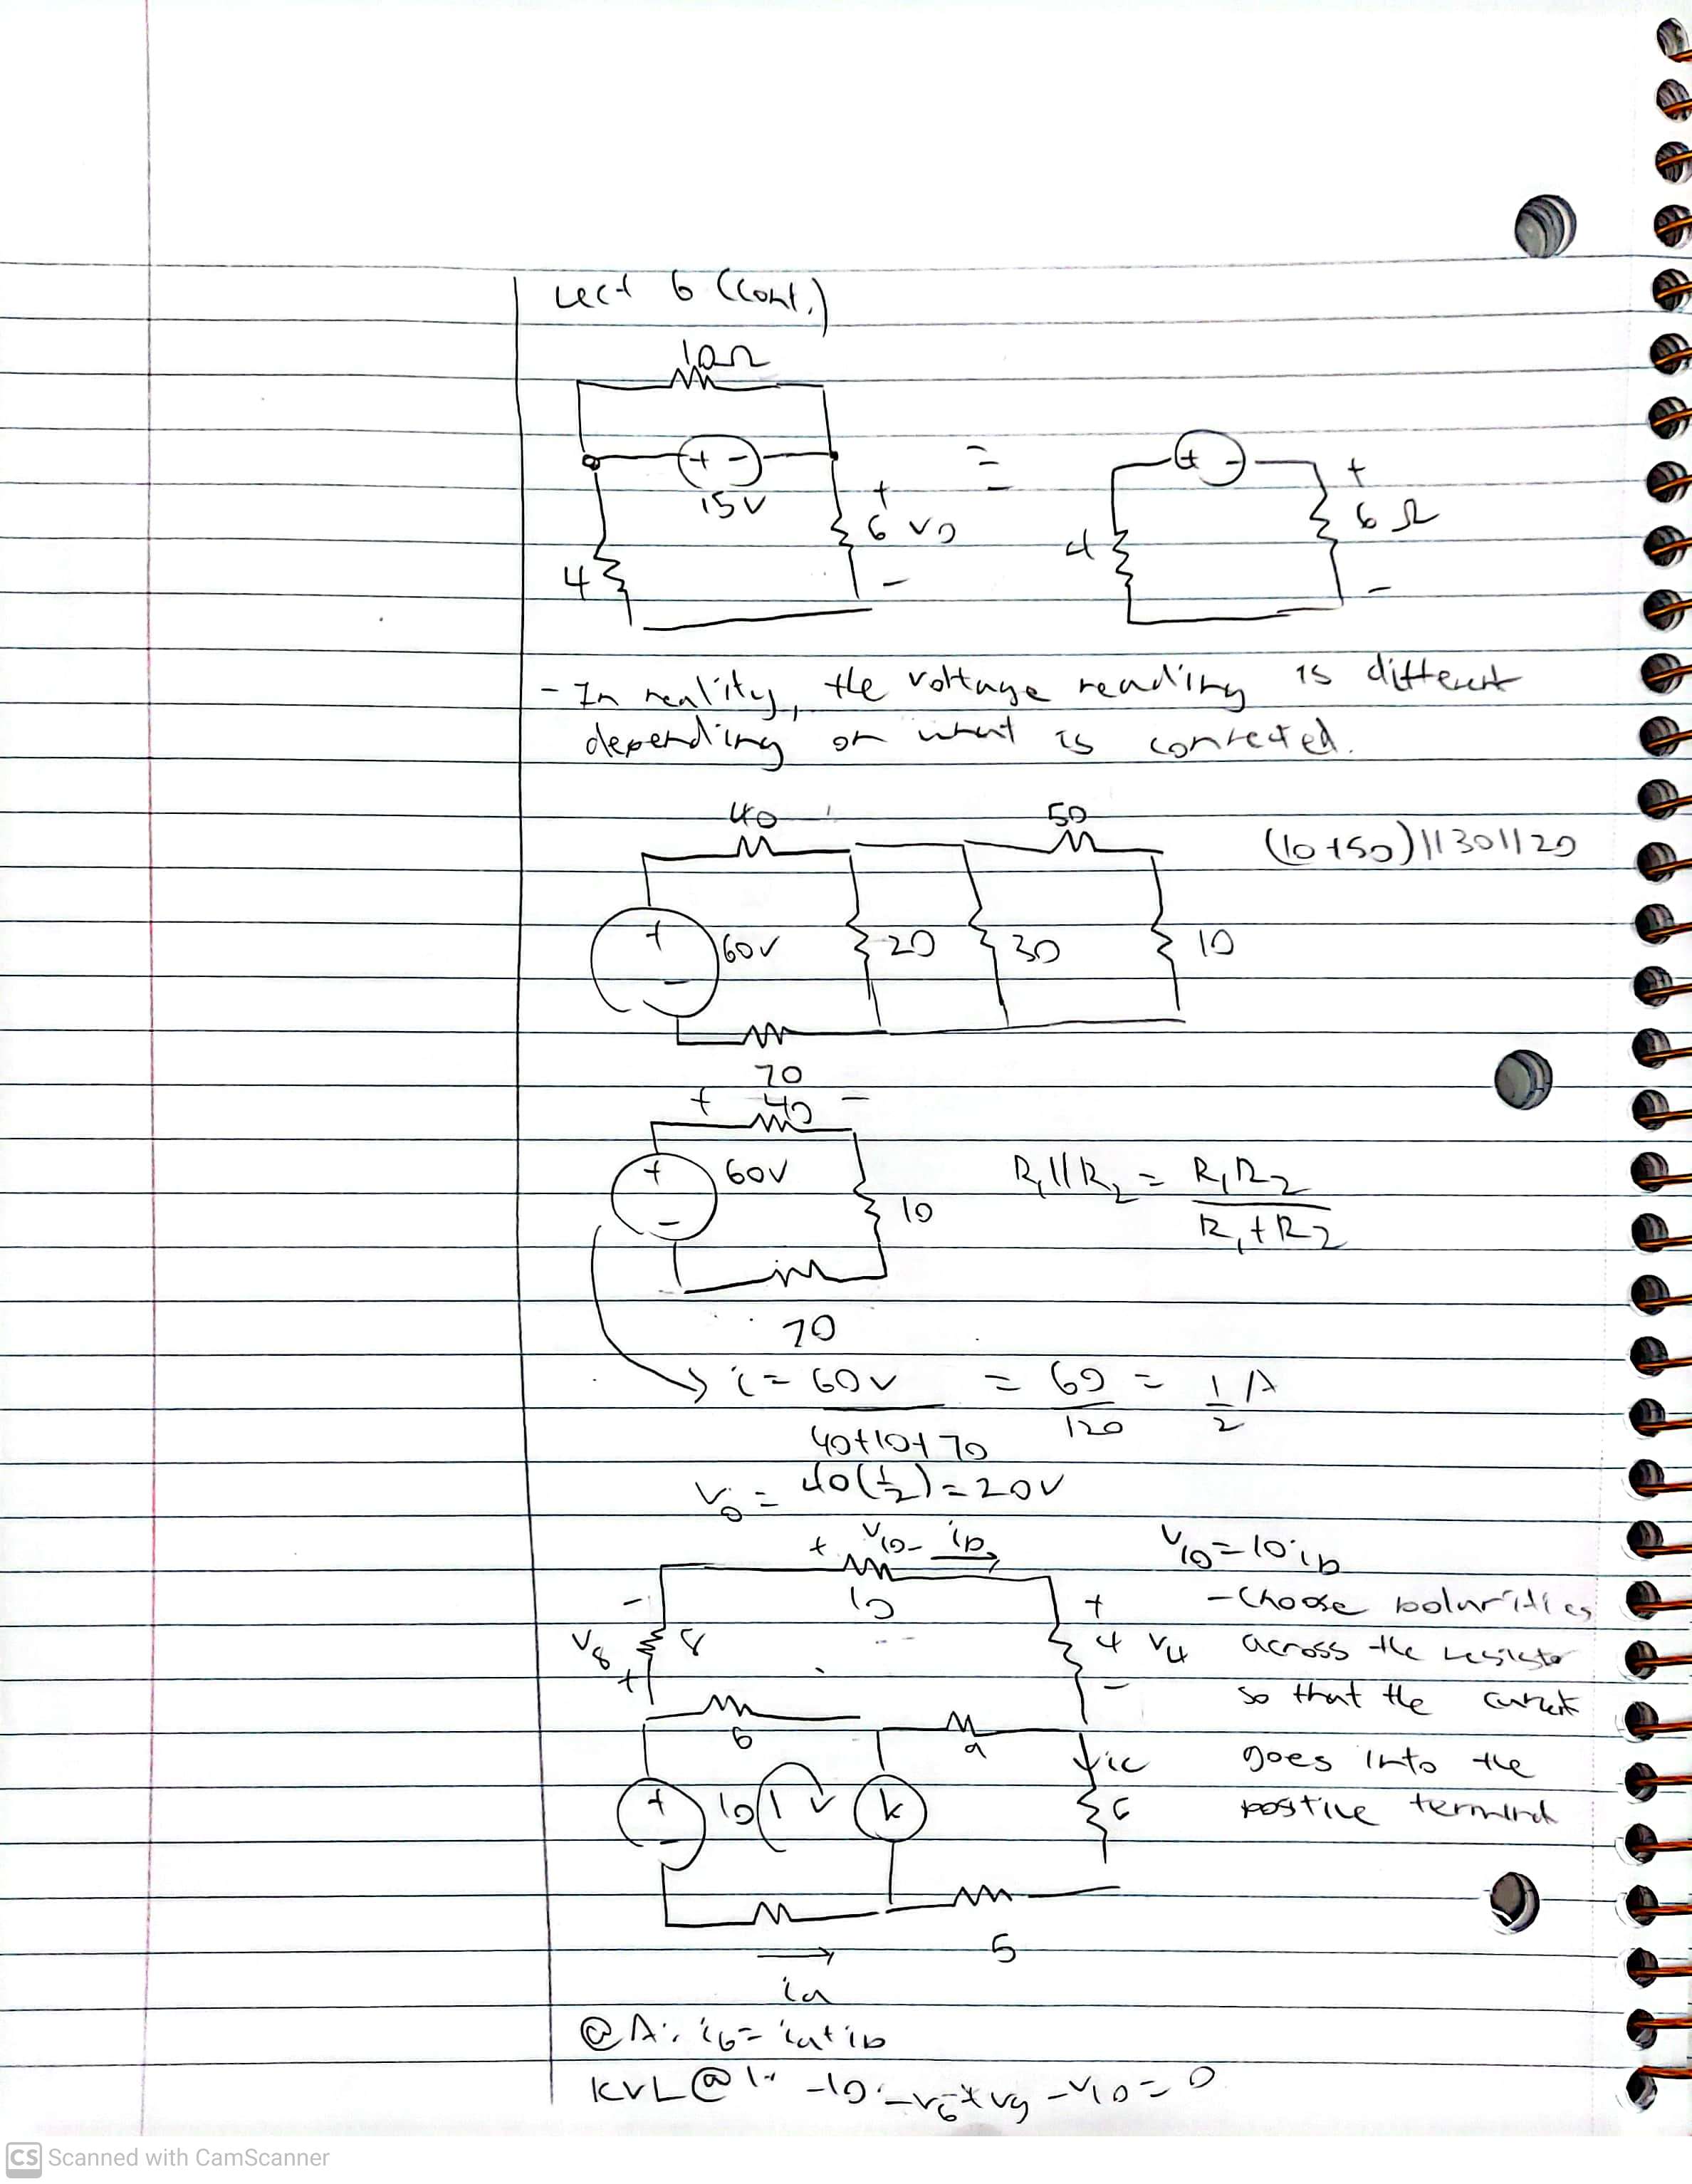 Lect 6 (cont.)
10Ω
+ -
15V
+
6 Vo
-
4
=
+ -
+
6 Ω
-
4
- In reality, the voltage reading is different
depending on what is connected.
40
50
(10+50)||30||20
+
-
60V
20
30
10
70
+ 40 -
+
-
60V
10
R1||R2 = R1R2
R1+R2
70
i = 60V = 60 = 1 A
40+10+70 120 2
Vo = 40(1/2) = 20V
+ V10 - ib
10
V10 = 10·ib
- Choose polarities
across the resistor
so that the current
goes into the
positive terminal
-
V8 8
+
+
4 V4
-
6
9
ic
+
-
10
1
k
6
5
ia
@A: i6 = ia+ib
KVL@1: -10 -V6+V9 -V10 = 0
CS Scanned with CamScanner